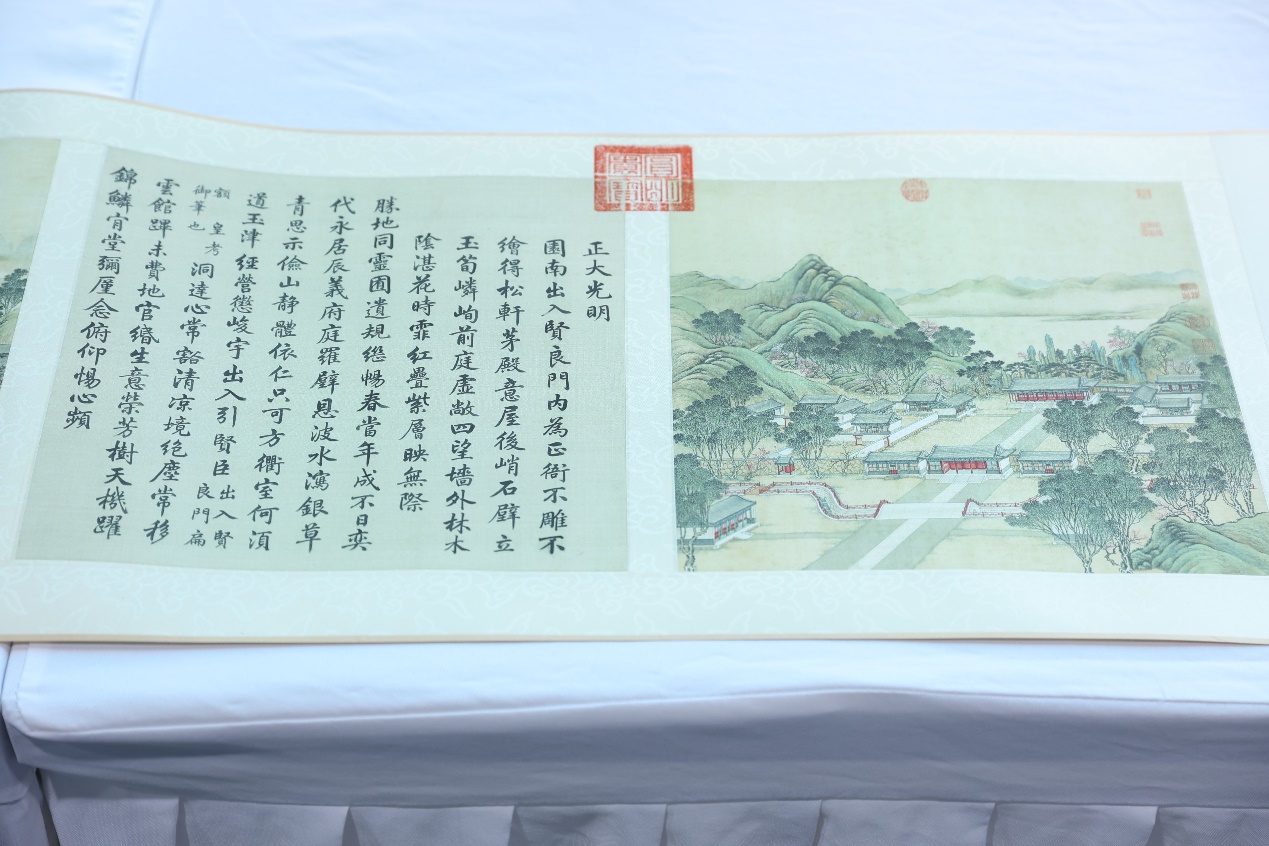 正大光明
園南出入賢良門内為正衙不雕不
繪得松軒茅殿意屋後峭石壁立
玉筍嶙峋前庭虛敞四望墻外林木
陰湛花時霏紅疊紫層映無際
勝地同靈囿遺規繼暢春當年成不日奕
代永居辰義府庭羅璧恩波水瀉銀草
青思示儉山静體依仁只可方衢室何須
道玉津經營懲峻宇出入引賢臣出入賢良門扁
額皇考御筆也洞達心常豁清凉境絶塵常移
雲館蹕未費地官緡生意榮芳樹天機躍
錦鱗宵堂彌厪念俯仰惕心頻